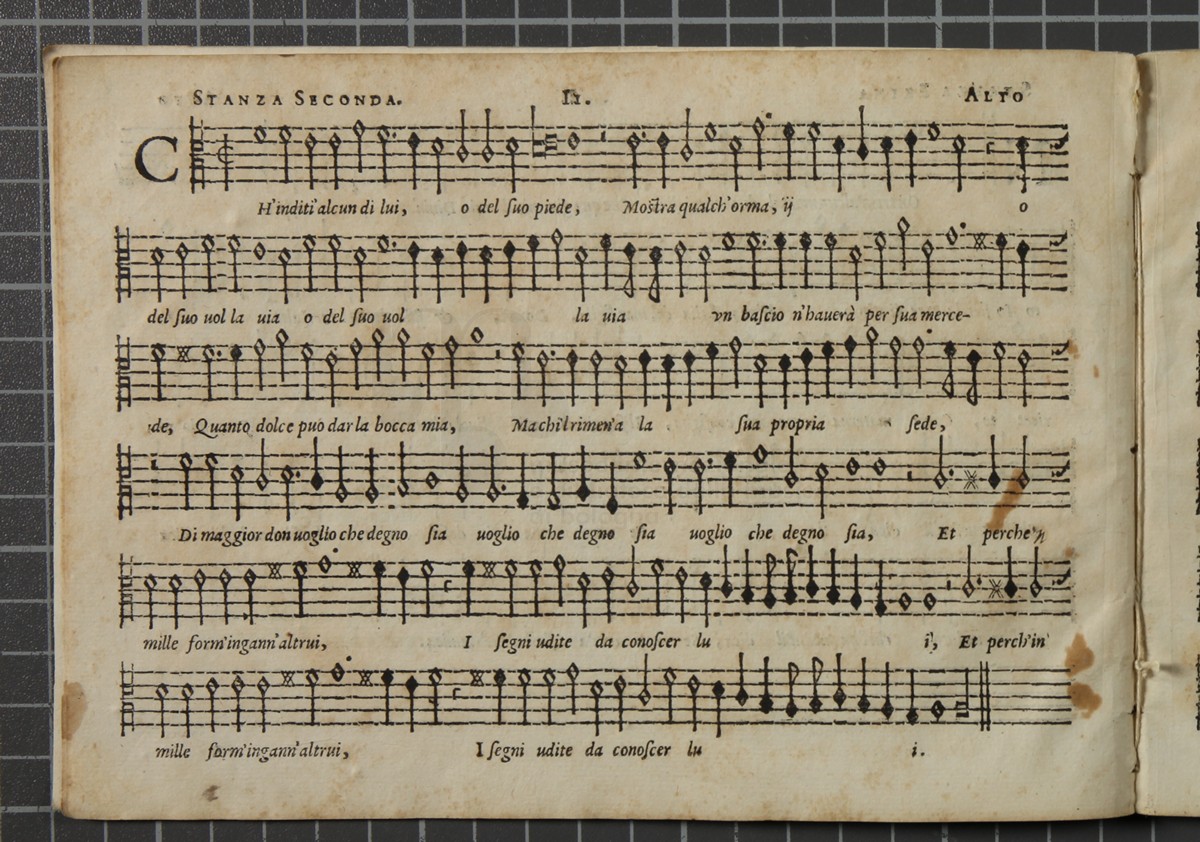 STANZA SECONDA. II. ALTO
CH'inditi'alcun di lui, o del ſuo piede, Moſtra qualch'orma, ij o
del ſuo uol la uia o del ſuo uol la uia vn baſcio n'hauerà per ſua merce-
de, Quanto dolce può dar la bocca mia, Ma chi'l rimen'a la ſua propria ſede,
Di maggior don uoglio che degno ſia uoglio che degno ſia uoglio che degno ſia, Et perche'n
mille form'ingann'altrui, I ſegni udite da conoſcer lu i, Et perch'in
mille form'ingann'altrui, I ſegni udite da conoſcer lu i.